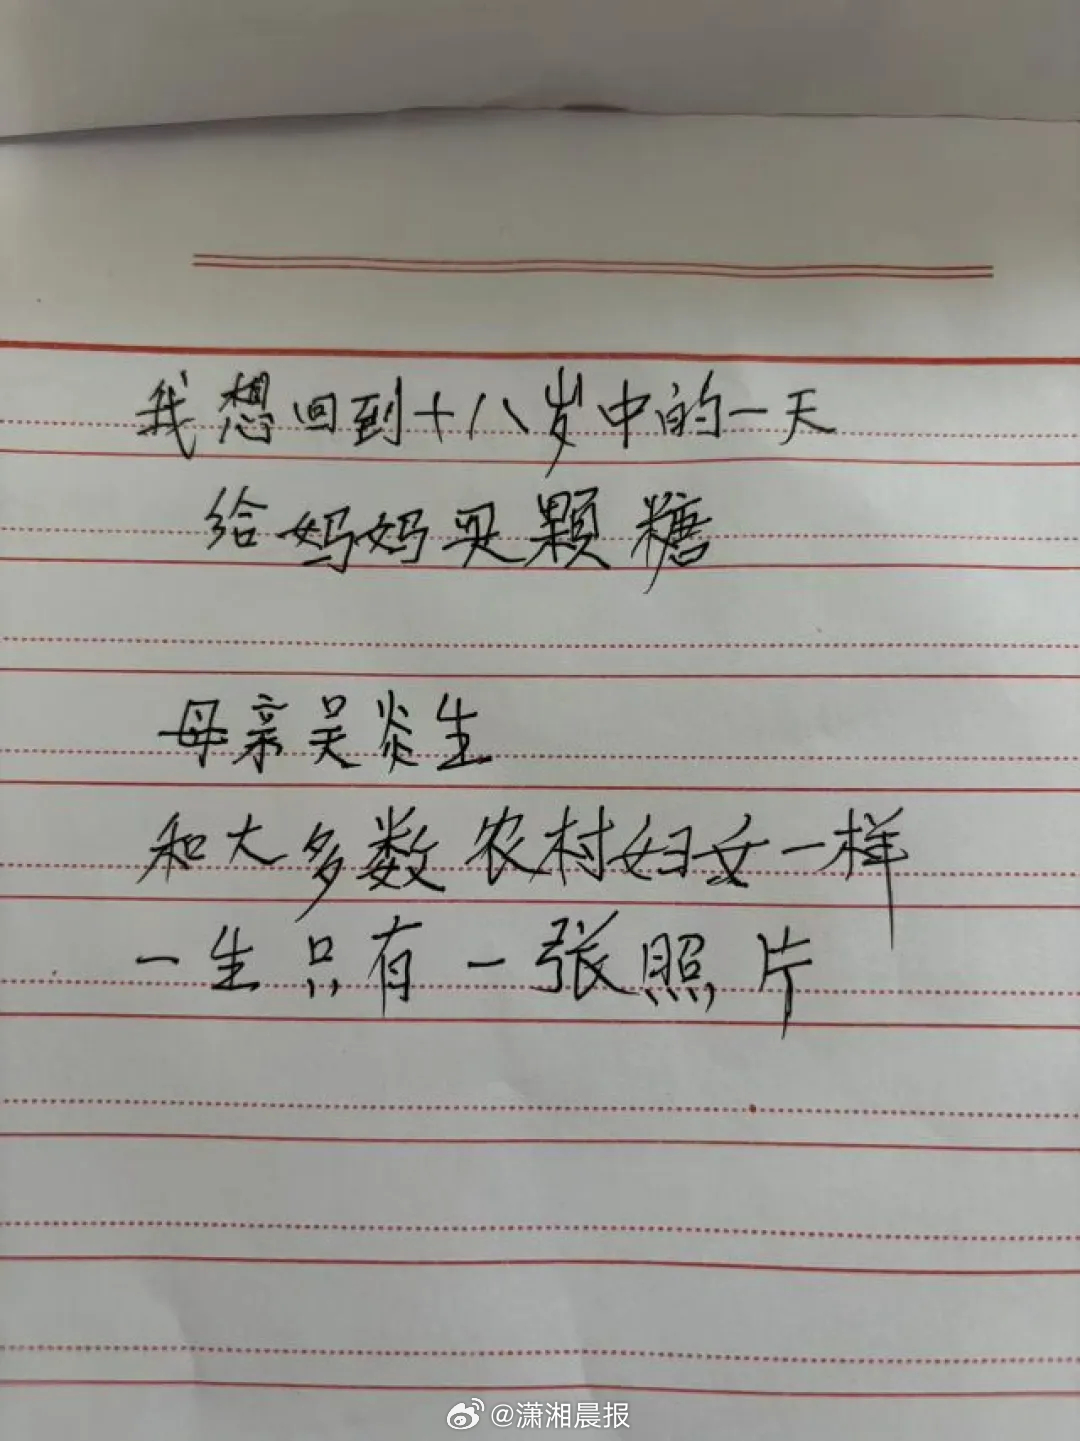 我想回到十八岁中的一天
给妈妈买颗糖
母亲吴炎生
和大多数农村妇女一样
一生只有一张照片
@潇湘晨报